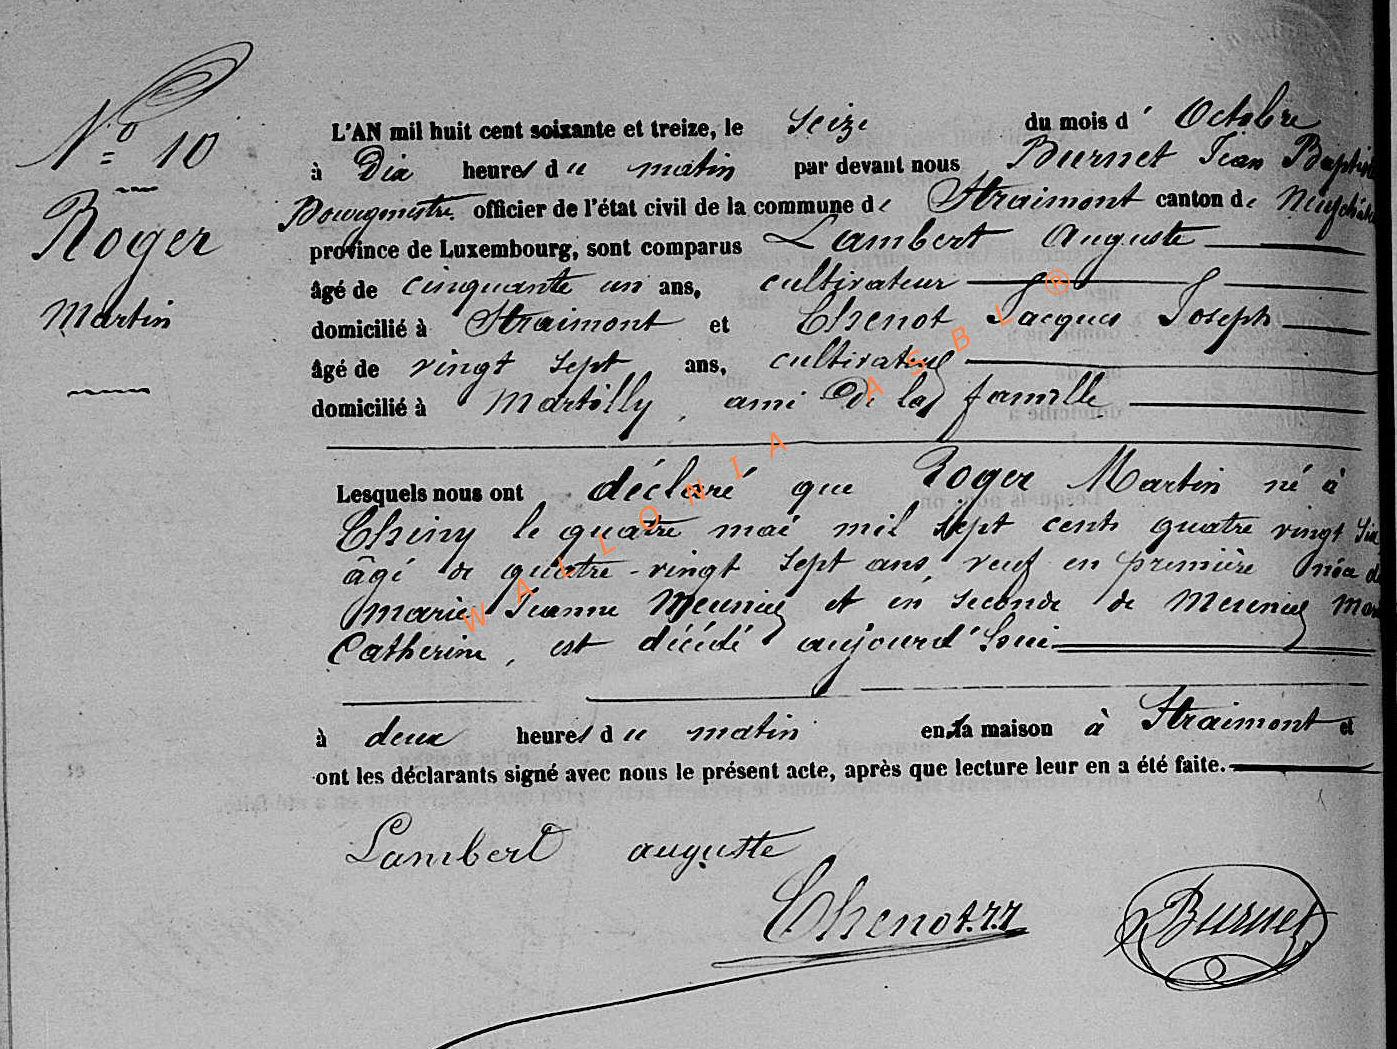 N.º 10
Roger
Martin
L'AN mil huit cent soixante et treize, le seize du mois d' Octobre
à Dix heures du matin par devant nous Burnet Jean Baptiste
Bourgmestre officier de l'état civil de la commune de Straimont canton de Neufchâte
province de Luxembourg, sont comparus Lambert Auguste
âgé de cinquante un ans, cultivateur
domicilié à Straimont et Thenot Jacques Joseph
âgé de vingt sept ans, cultivateur
domicilié à Martilly, ami de la famille
Lesquels nous ont déclaré que Roger Martin né à
Chiny le quatre mai mil sept cents quatre vingt six
âgé de quatre-vingt sept ans, veuf en première nôce de
Marie Jeanne Meunier et en seconde de Meunier Mar
Catherine, est décédé aujourd'hui
à deux heures du matin en sa maison à Straimont et
ont les déclarants signé avec nous le présent acte, après que lecture leur en a été faite.
Lambert auguste
Thenot.J.J
Burnet
WALLONIA ASBL ®